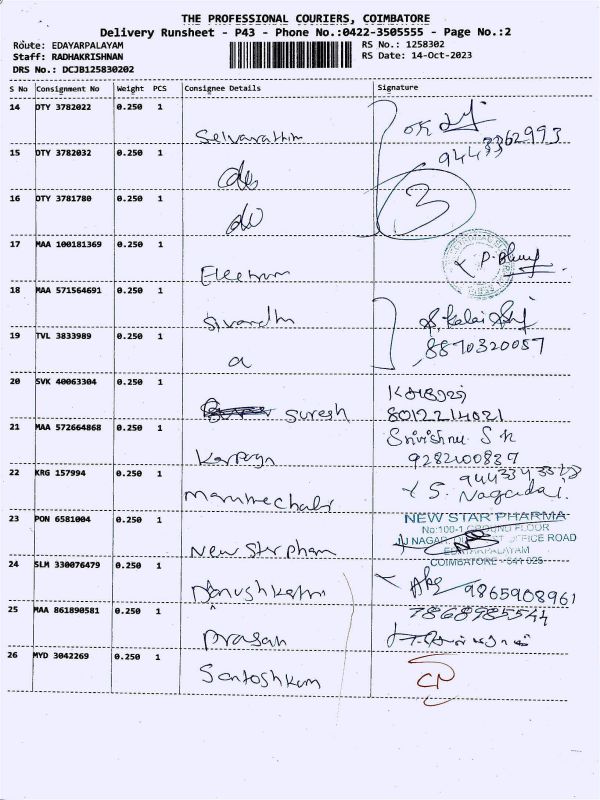 THE PROFESSIONAL COURIERS, COIMBATORE
Delivery Runsheet - P43 - Phone No.:0422-3505555 - Page No.:2
Route: EDAYARPALAYAM
RS No.: 1258302
Staff: RADHAKRISHNAN
RS Date: 14-Oct-2023
DRS No.: DCJB125830202
S No Consignment No Weight PCS Consignee Details Signature
14 DTY 3782022 0.250 1
ok
9443362993
15 DTY 3782032 0.250 1
do
16 DTY 3781780 0.250 1
do
3
17 MAA 100181369 0.250 1
18 MAA 571564691 0.250 1
19 TVL 3833989 0.250 1
8870320057
20 SVK 40063304 0.250 1
Suresh
8012214021
21 MAA 572664868 0.250 1
Srivishnu S K
9282100837
22 KRG 157994 0.250 1
23 PON 6581004 0.250 1
New Star pham
NEW STAR PHARMA
No:100-1 GROUND FLOOR
OFFICE ROAD
EDAYARPALAYAM
COIMBATORE - 641 025
24 SLM 330076479 0.250 1
9865908961
25 MAA 861890581 0.250 1
Prasan
7868985544
26 MYD 3042269 0.250 1
Santoshkum